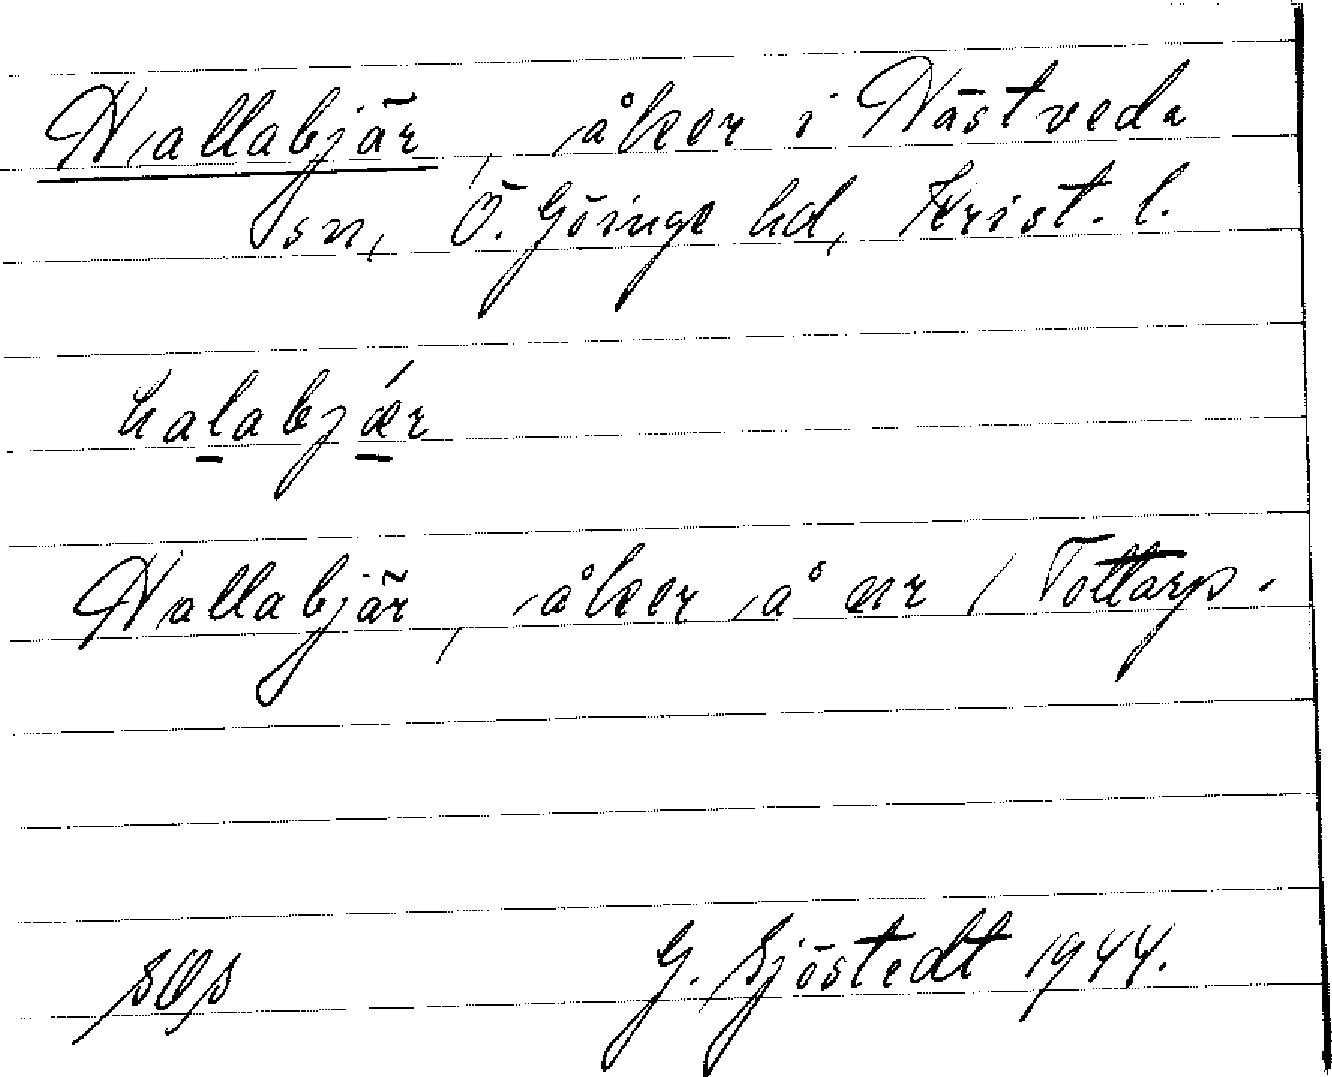 Hallabjär, åker i Västveda
sn, Ö. Göinge hd, Krist. l.
halabjǽr
Hallabjär, åker å nr 1 Tottarp.
G. Sjöstedt 1944.